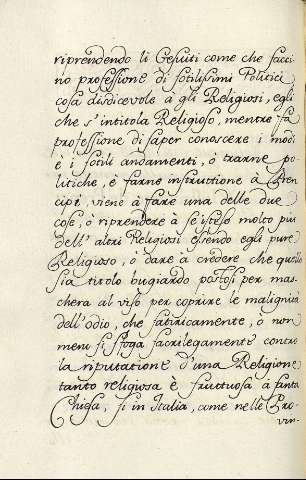 riprendendo li Gesuiti come che facci-
no professione di sotilissimi Politici
cosa disdicevole à gli Religiosi, egli
che s'intitola Religioso, mentre fà
professione di saper conoscere i modi
è i sotili andamenti, ò trarne po-
litiche, è farne instruttione à Pren-
cipi, viene à fare una delle due
cose, ò riprendere à se stesso molto piu
dell' altri Religiosi essendo egli pure
Religioso, ò dare à credere che quello
sia titolo bugiardo postosi per mas-
chera al viso per coprire le malignità
dell'odio, che satiricamente, ò non
meno si sfoga sacrilegamente contro
la riputatione d'una Religione
tanto religiosa è fruttuosa à santa
Chiesa, sì in Italia, come nelle Pro-
vin-